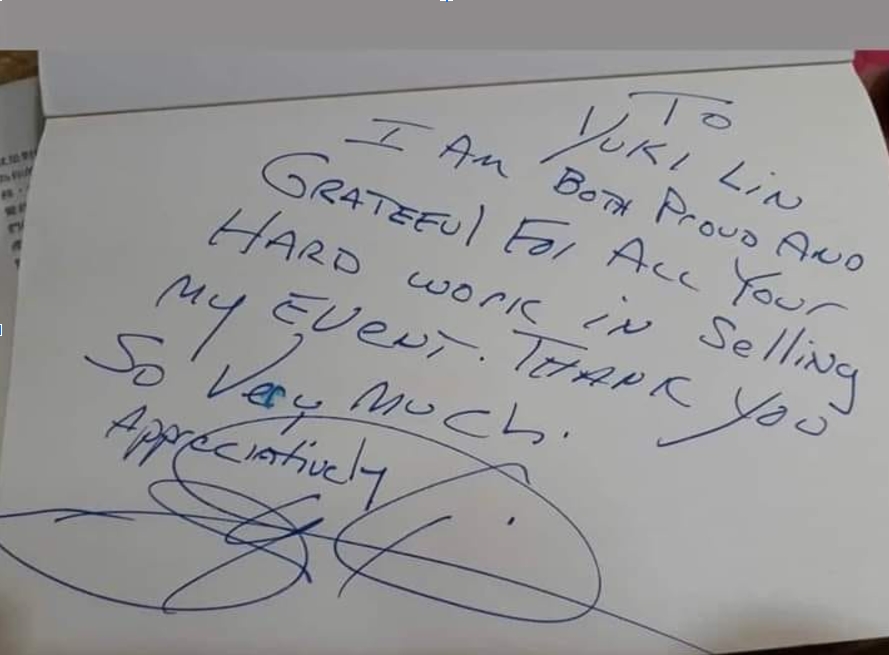 To
Yuki Lin
I Am Both Proud And
Grateful For All Your
Hard work in Selling
My Event. Thank You
So Very Much.
Appreciatively